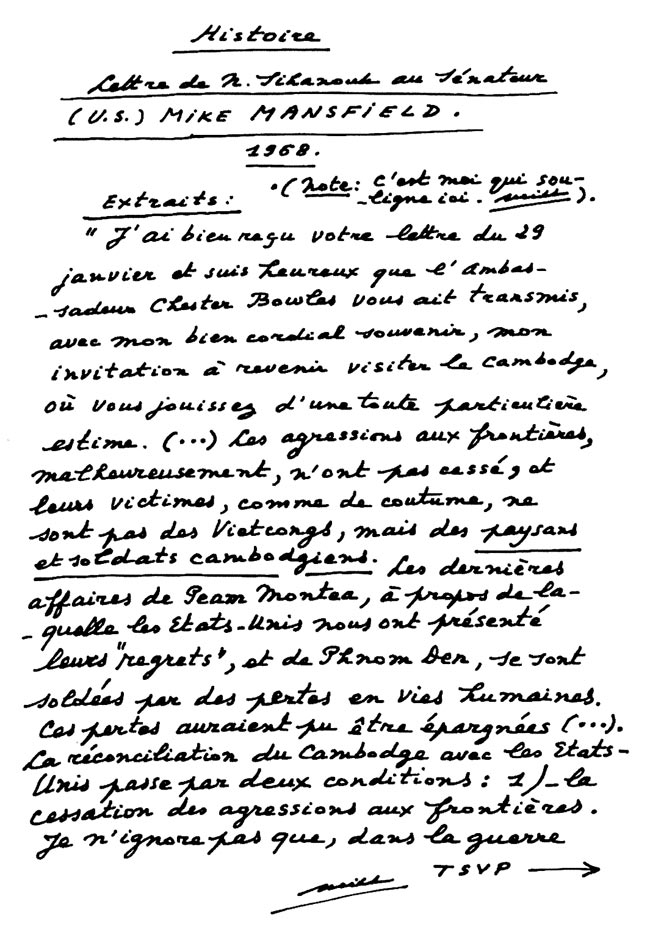 Histoire
Lettre de N. Sihanouk au Sénateur
(U.S.) MIKE MANSFIELD.
1968.
• (Note: C'est moi qui sou-
Extraits: -ligne ici. ).
" J'ai bien reçu votre lettre du 29
janvier et suis heureux que l'Ambas-
-sadeur Chester Bowles vous ait transmis,
avec mon bien cordial souvenir, mon
invitation à revenir visiter le Cambodge,
où vous jouissez d'une toute particulière
estime. (...) Les agressions aux frontières,
malheureusement, n'ont pas cessé, et
leurs victimes, comme de coutume, ne
sont pas des Vietcongs, mais des paysans
et soldats cambodgiens. Les dernières
affaires de Peam Montea, à propos de la-
-quelle les Etats-Unis nous ont présenté
leurs "regrets", et de Phnom Den, se sont
soldées par des pertes en vies humaines.
Ces pertes auraient pu être épargnées (...).
La réconciliation du Cambodge avec les Etats-
Unis passe par deux conditions : 1)_ la
cessation des agressions aux frontières.
Je n'ignore pas que, dans la guerre
TSVP →